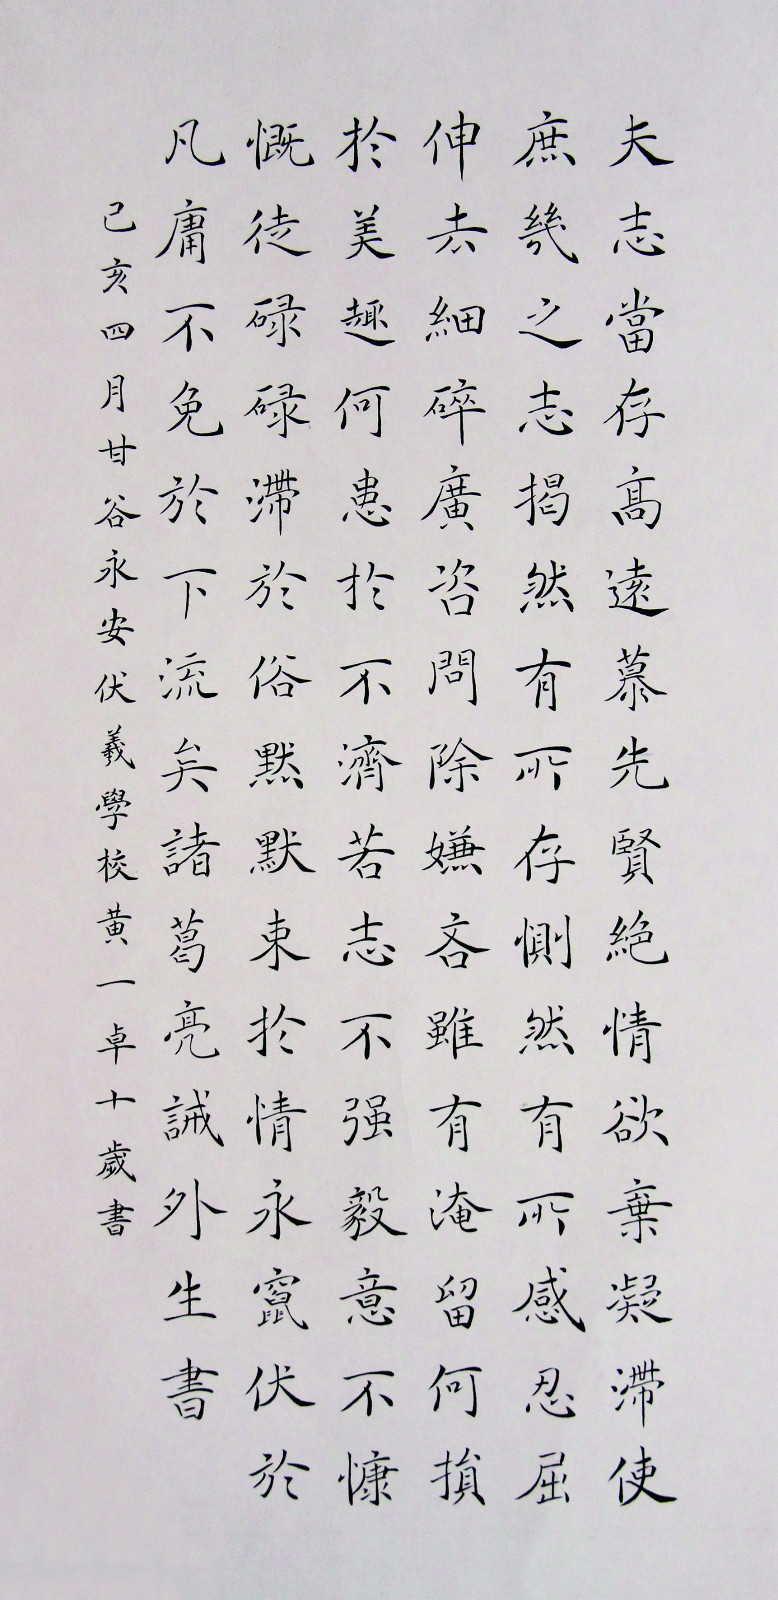 夫志當存高遠慕先賢絕情欲棄凝滯使
庶幾之志揭然有所存惻然有所感忍屈
伸去細碎廣咨問除嫌吝雖有淹留何損
於美趣何患於不濟若志不强毅意不慷
慨徒碌碌滯於俗默默束於情永竄伏於
凡庸不免於下流矣諸葛亮誡外生書
己亥四月甘谷永安伏羲學校黃一卓十歲書